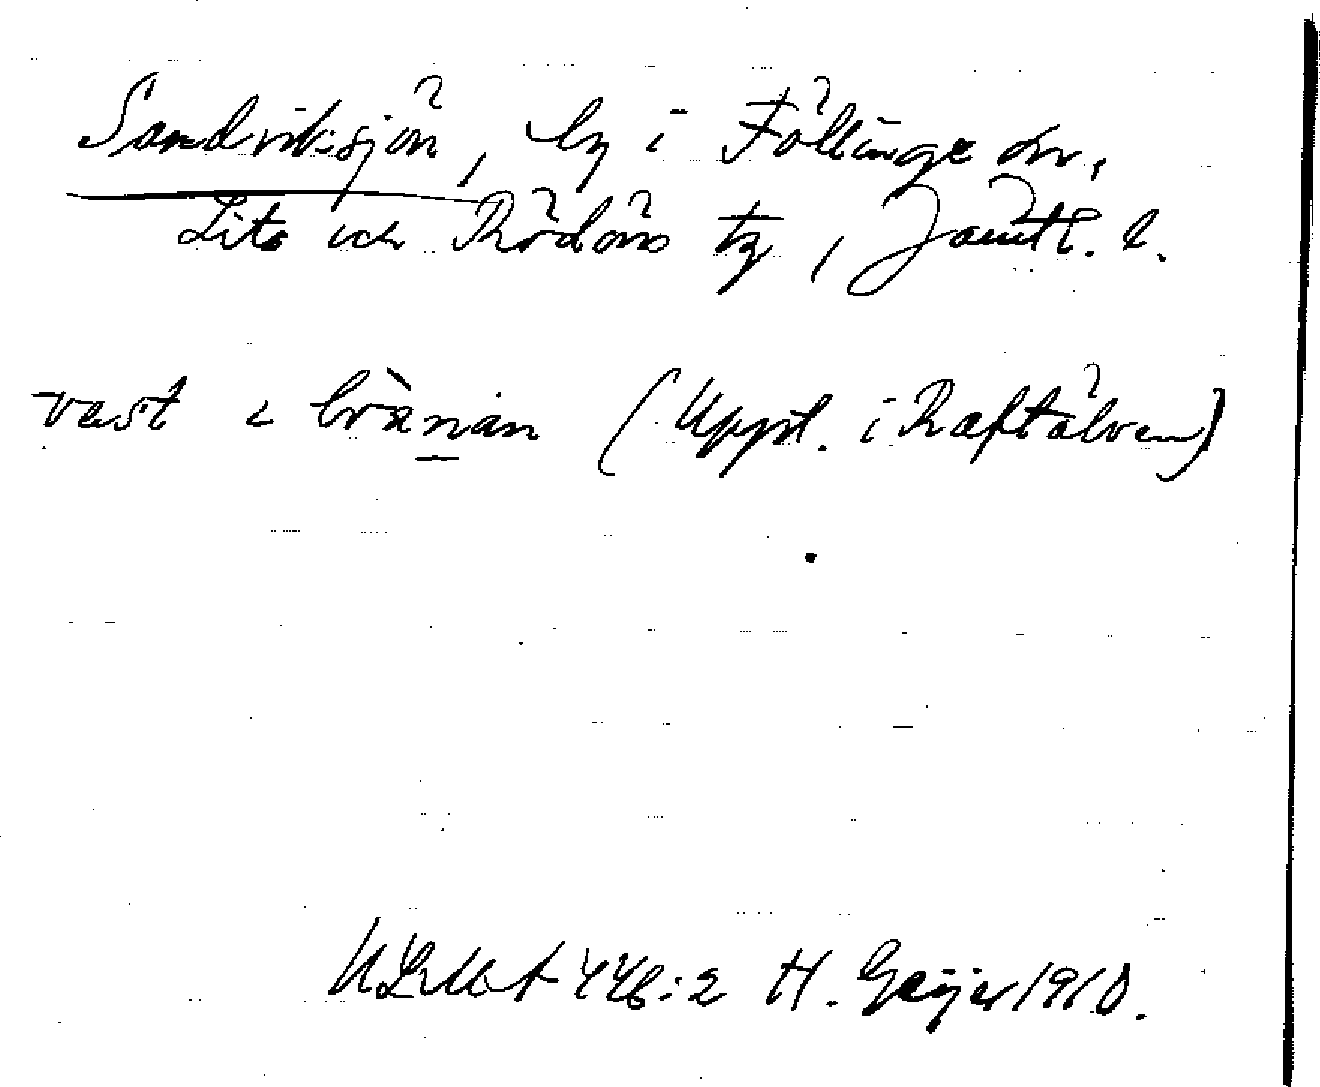 Sandviksjön, by i Föllinge sn,
Lits och Rödöns tg, Jämtl. l.
(Uppt. i Raftälven)
446:2 H. Geijer 1910.